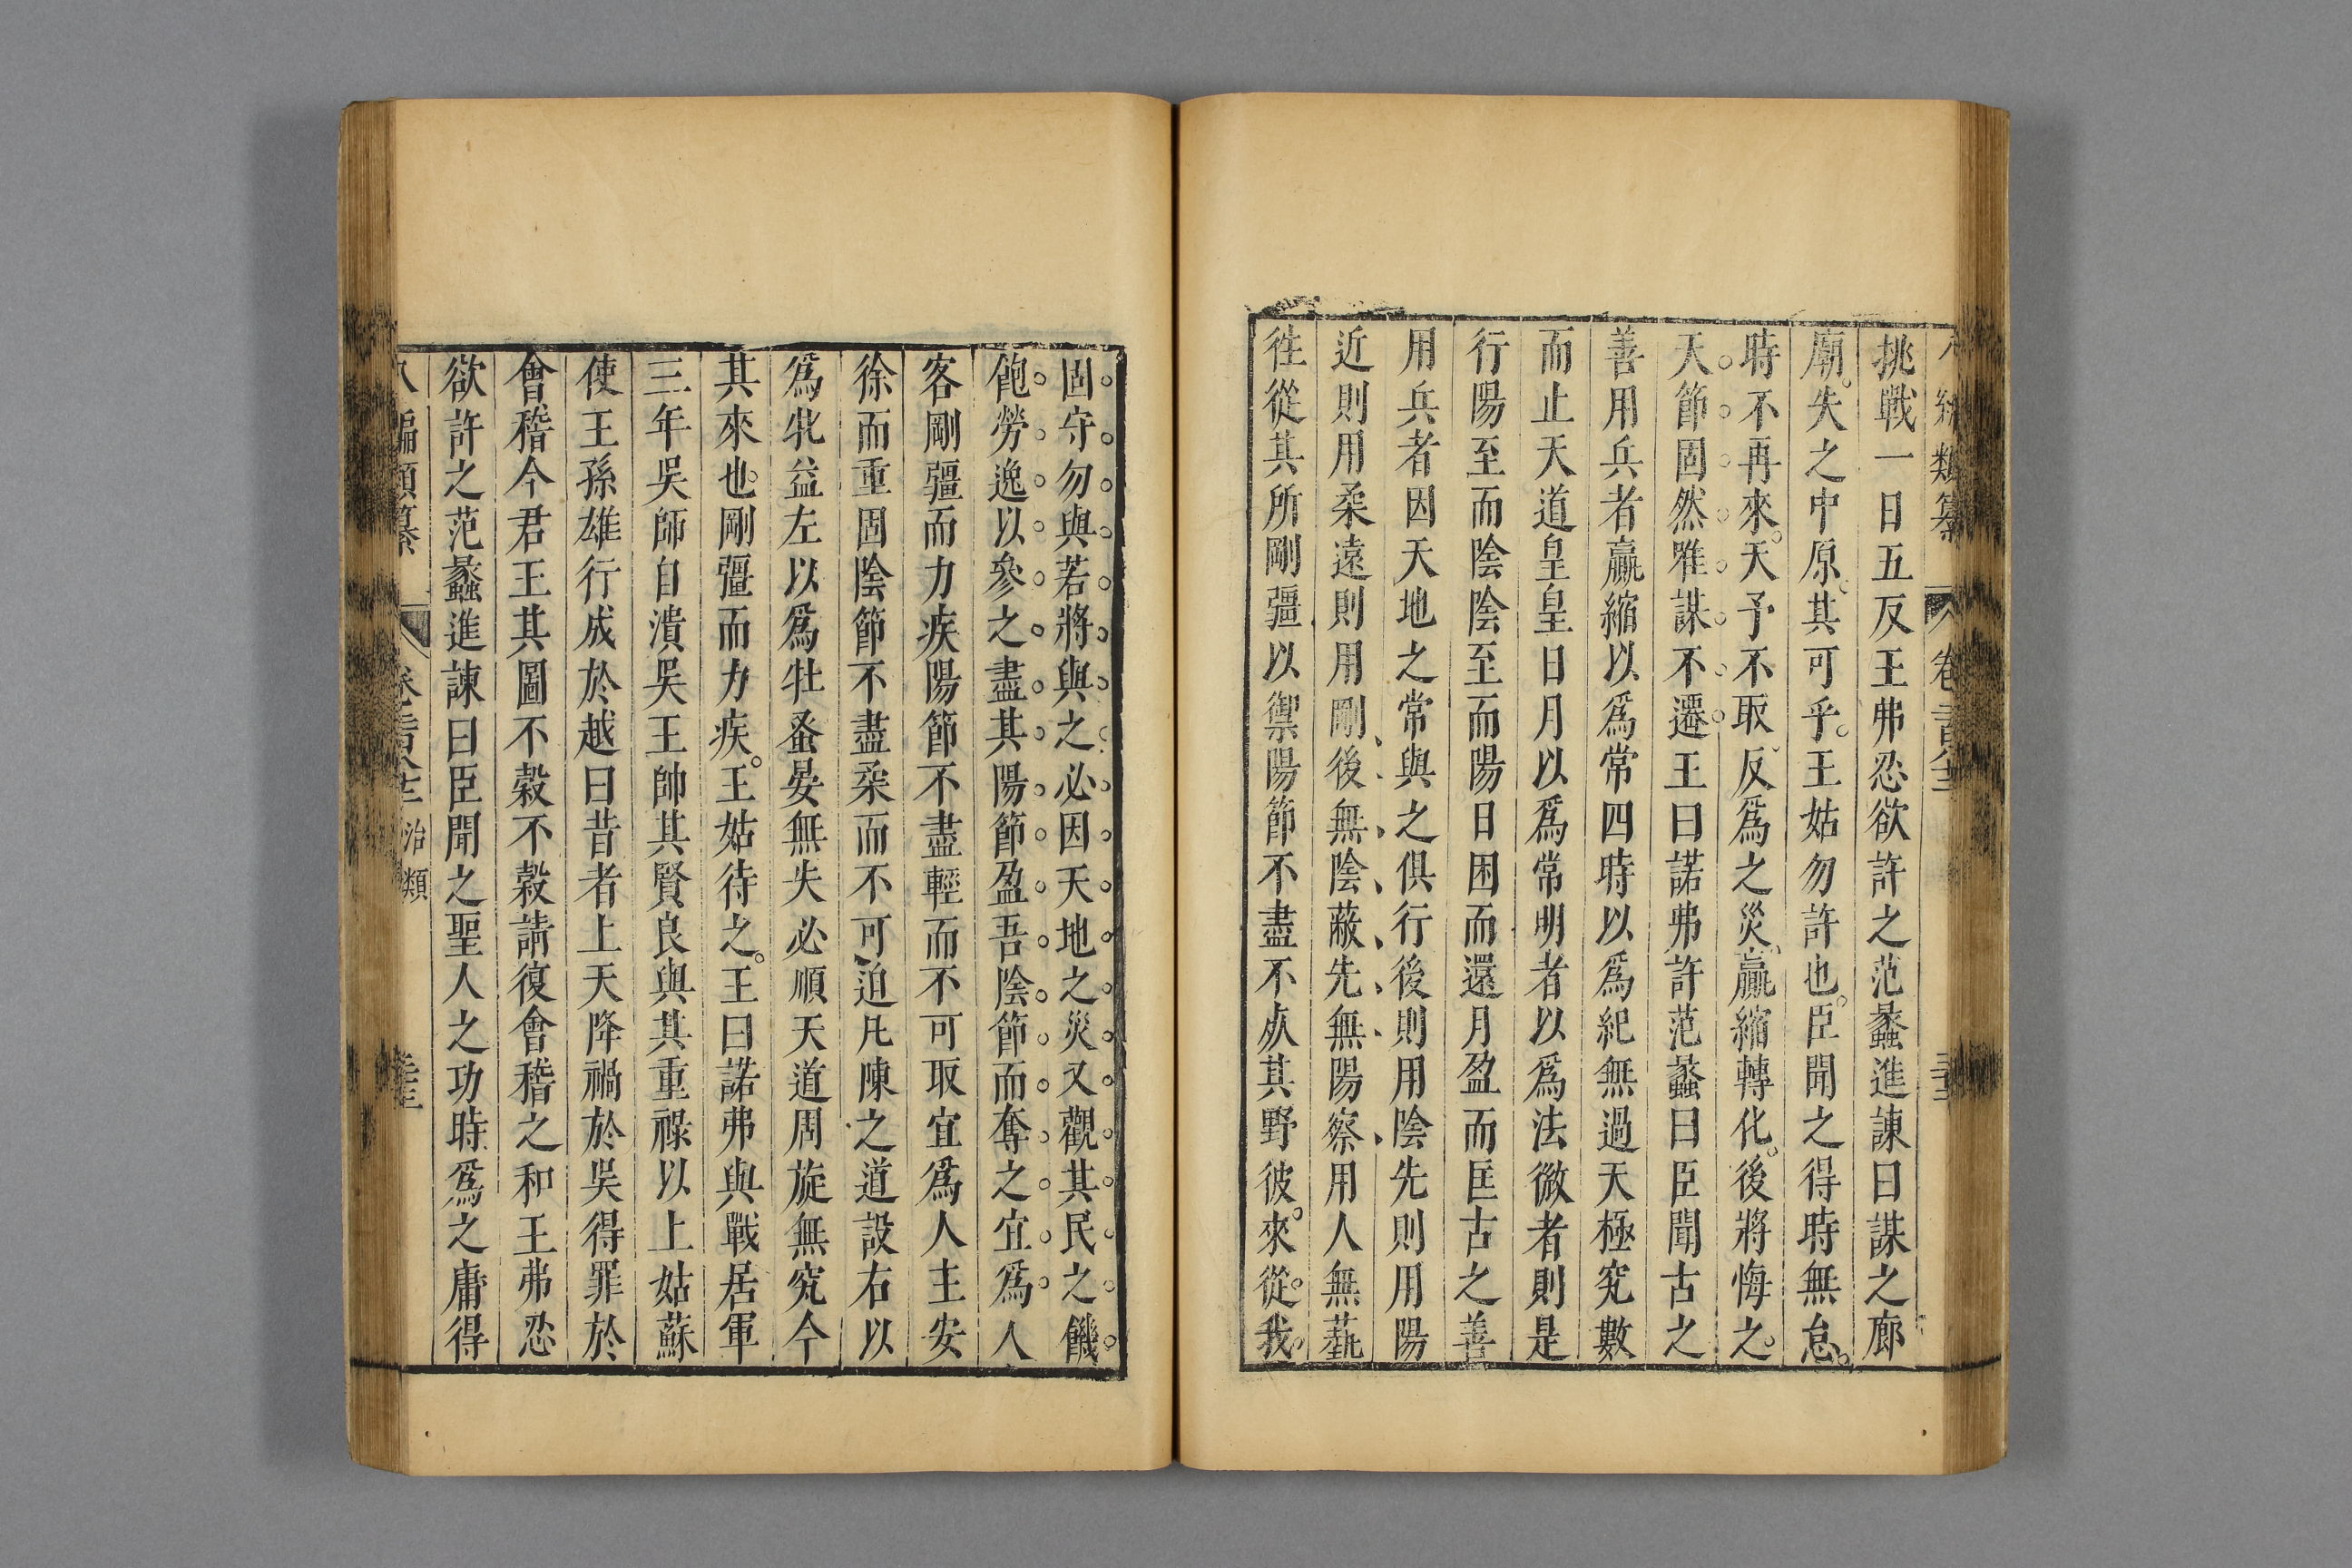 類纂
挑戰一日五反王弗忍欲許之范蠡進諫曰謀之廊
廟失之中原其可乎王姑勿許也臣聞之得時無怠
時不再來天予不取反爲之災贏縮轉化後將悔之
天節固然唯謀不遷王曰諾弗許范蠡曰臣聞古之
善用兵者贏縮以爲常四時以爲紀無過天極究數
而止天道皇皇日月以爲常明者以爲法微者則是
行陽至而陰陰至而陽日困而還月盈而匡古之善
用兵者因天地之常與之俱行後則用陰先則用陽
近則用柔遠則用剛後無陰蔽先無陽察用人無蓺
徃從其所剛彊以禦陽節不盡不㱾其野彼來從我
固守勿與若將與之必因天地之災又觀其民之饑
飽勞逸以參之盡其陽節盈吾陰節而奪之宜爲人
客剛彊而力疾陽節不盡輕而不可取宜爲人主安
徐而重固陰節不盡柔而不可迫凡陳之道設右以
爲牝益左以爲牡蚤晏無失必順天道周旋無究今
其來也剛彊而力疾王姑待之王曰諾弗與戰居軍
三年吳師自潰吳王帥其賢良與其重祿以上姑蘇
使王孫雄行成於越曰昔者上天降禍於吳得罪於
會稽今君王其圖不穀不穀請復會稽之和王弗忍
欲許之范蠡進諫曰臣聞之聖人之功時爲之庸得
八編類纂 治類